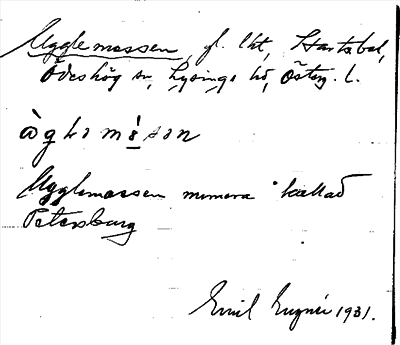 Ugglemossen, gl. lht, Startabol,
Ödeshög sn, Lysings hd, Östg. l.
Ugglemossen numera kallad
Petersburg
Emil 1931.